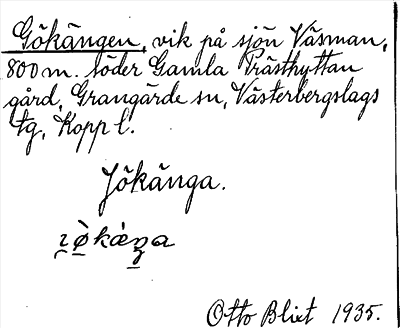 Gökängen, vik på sjön Väsman,
800 m. söder Gamla Prästhyttan
gård, Grangärde sn, Västerbergslags
tg, Kopp l.
Jökänga.
Otto Blixt 1935.